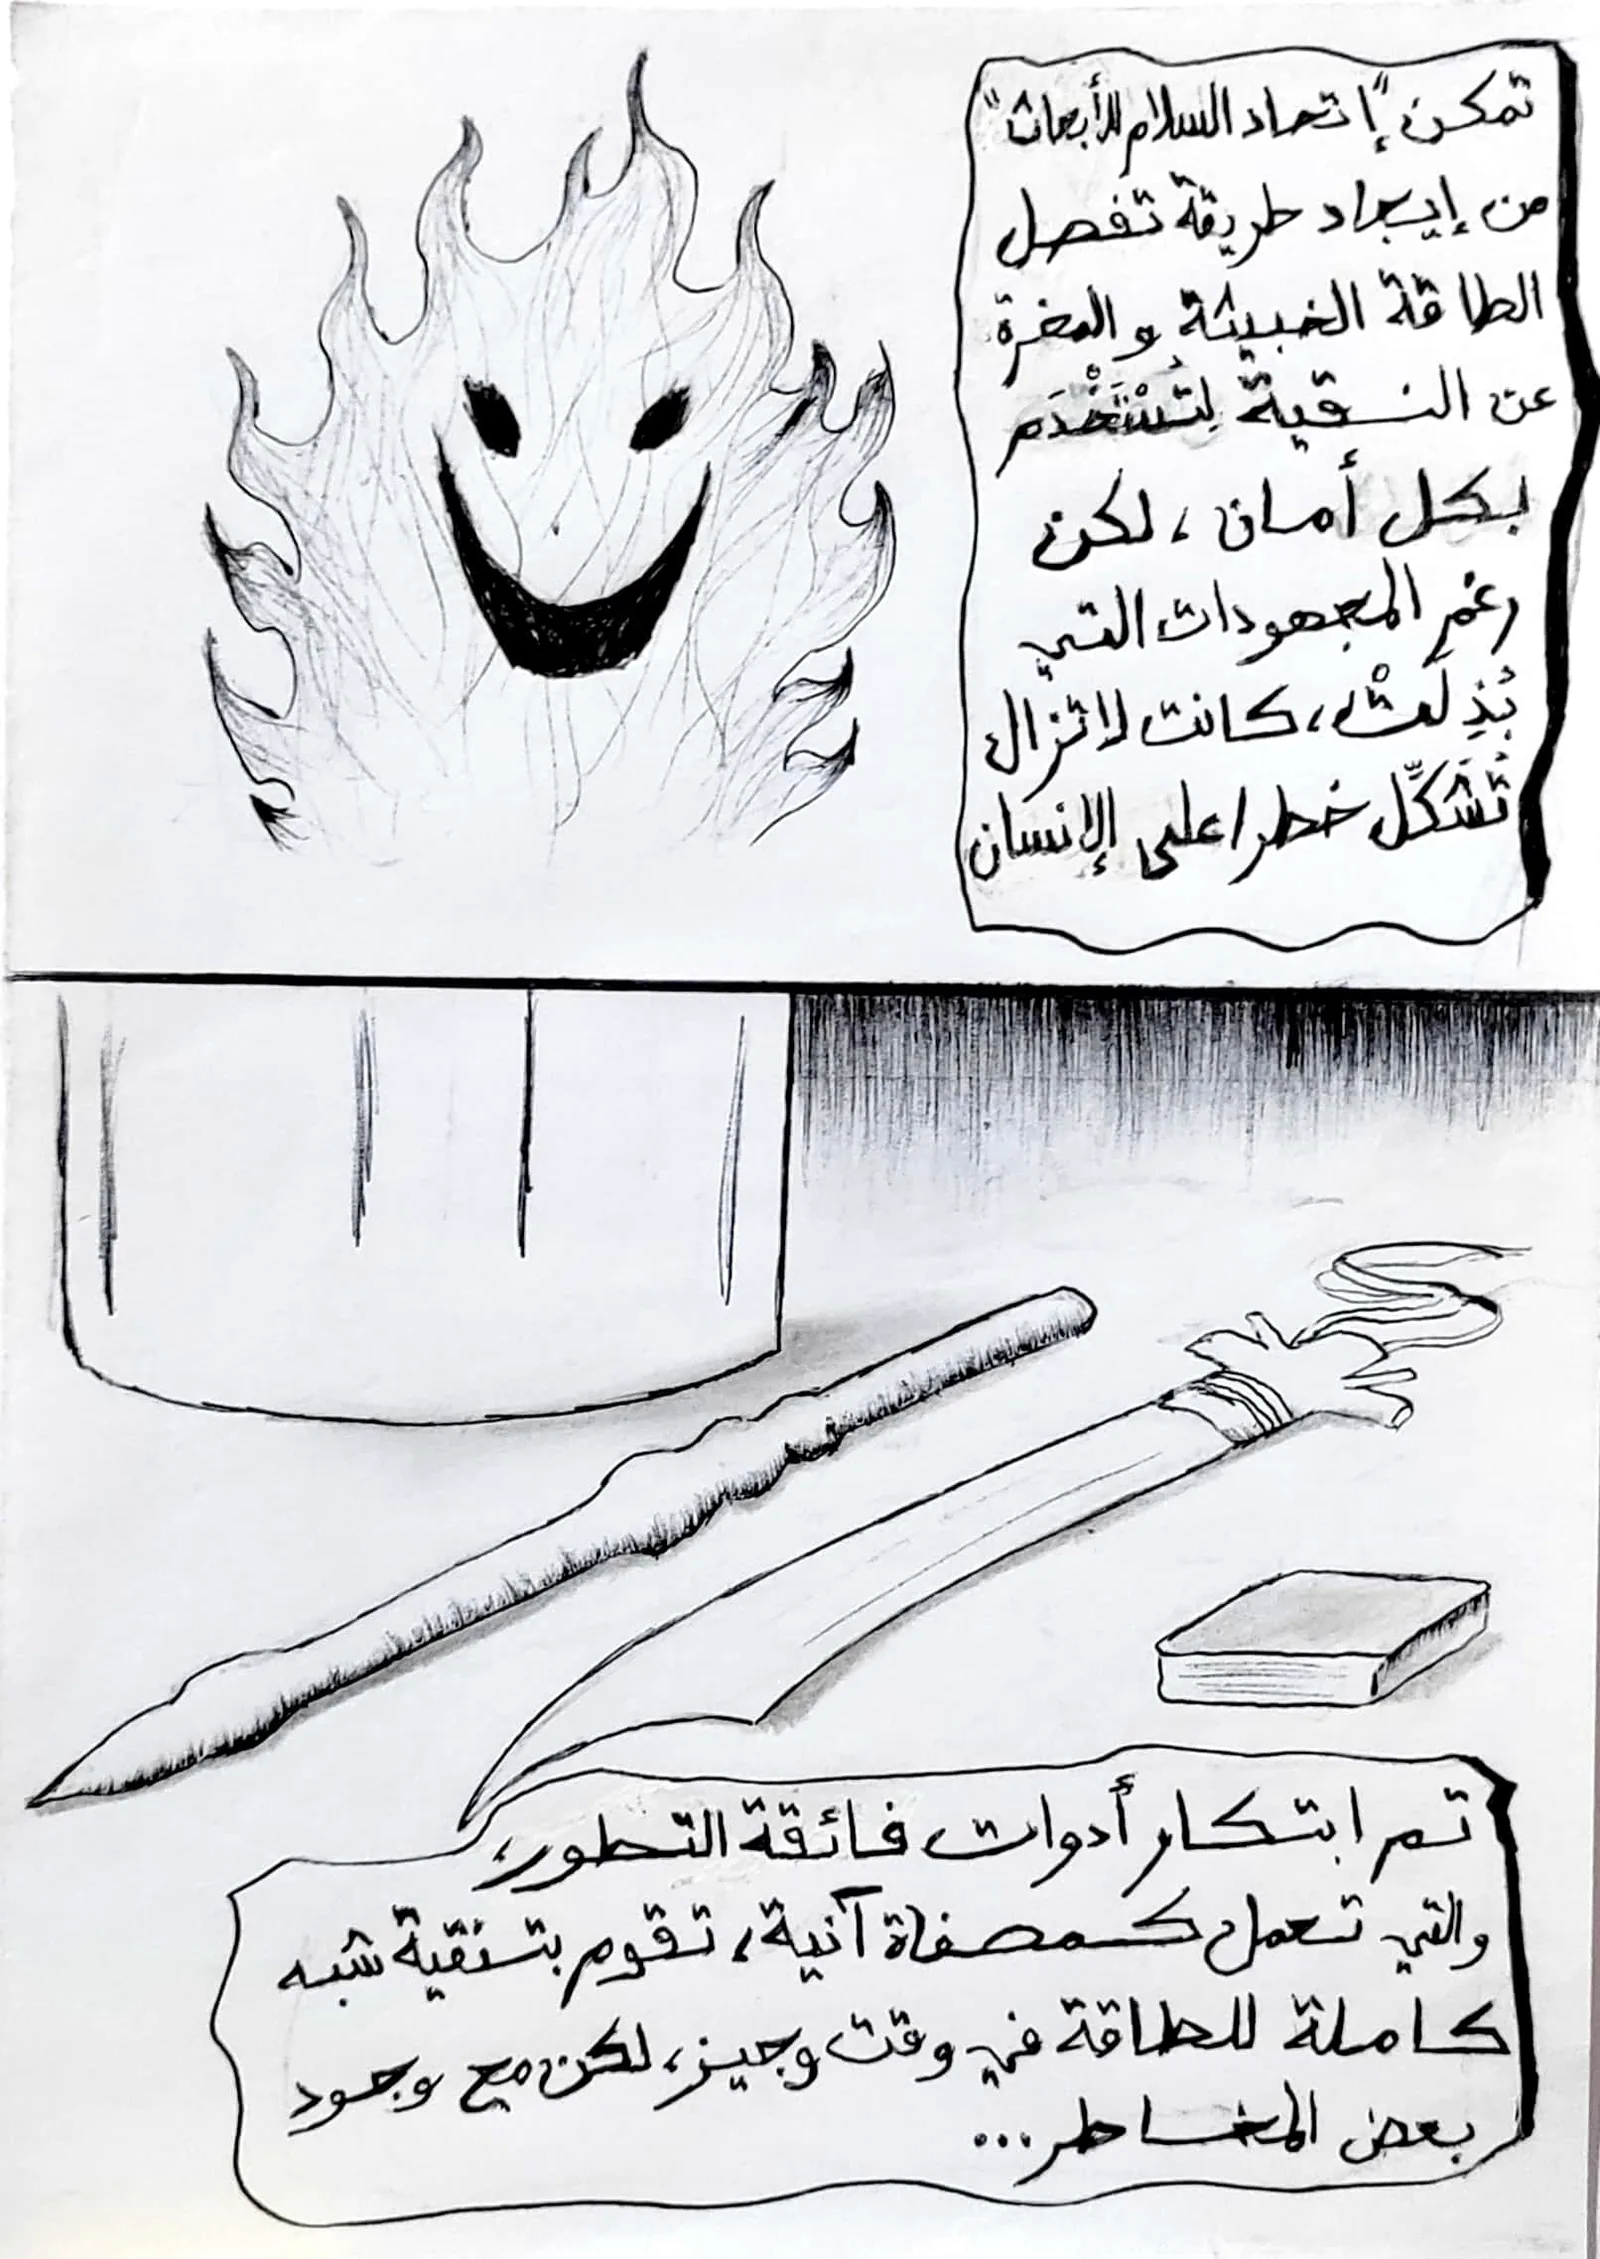 تمكن "إتحاد السلام للأبحاث"
من إيجاد طريقة تفصل
الطاقة الخبيثة و المضرة
عن النقية لِتُسْتَخْدَم
بكل أمان، لكن
رغم المجهودات التي
بُذِلَتْ، كانت لا تزال
تُشَكِّل خطرا على الإنسان
تم ابتكار أدوات فائقة التطور،
والتي تعمل كمصفاة آنية، تقوم بتنقية شبه
كاملة للطاقة في وقت وجيز، لكن مع وجود
بعض المخاطر...